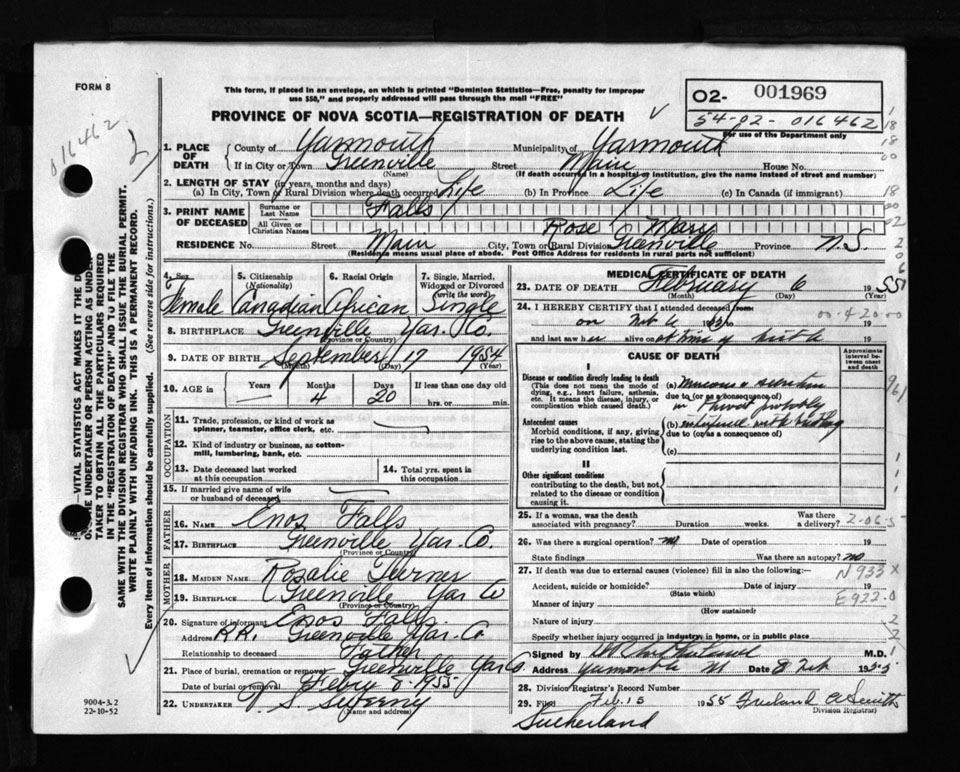 FORM 8
This form, if placed in an envelope, on which is printed "Dominion Statistics—Free, penalty for improper
use $50," and properly addressed will pass through the mail "FREE"
PROVINCE OF NOVA SCOTIA—REGISTRATION OF DEATH
O2- 001969
54-02-016462
For use of the Department only
016462
1. PLACE OF DEATH
County of Yarmouth Municipality of Yarmouth
If in City or Town Greenville Street Main House No.
(Name) (If death occurred in a hospital or institution, give the name instead of street and number)
2. LENGTH OF STAY (in years, months and days)
(a) In City, Town or Rural Division where death occurred Life (b) In Province Life (c) In Canada (if immigrant)
3. PRINT NAME OF DECEASED
Surname or Last Name Falls
All Given or Christian Names Rose Mary
RESIDENCE No. Street Main City, Town or Rural Division Greenville Province N.S.
(Residence means usual place of abode. Post Office Address for residents in rural parts not sufficient)
4. Sex Female
5. Citizenship (Nationality) Canadian
6. Racial Origin African
7. Single, Married, Widowed or Divorced (write the word) Single
8. BIRTHPLACE Greenville Yar. Co.
(Province or Country)
9. DATE OF BIRTH September 17 1954
(Month) (Day) (Year)
10. AGE in Years — Months 4 Days 20 If less than one day old hrs. or min.
OCCUPATION
11. Trade, profession, or kind of work as spinner, teamster, office clerk, etc. —
12. Kind of industry or business, as cotton-mill, lumbering, bank, etc.
13. Date deceased last worked at this occupation
14. Total yrs. spent in this occupation
15. If married give name of wife or husband of deceased —
FATHER
16. NAME Enos Falls
17. BIRTHPLACE Greenville Yar. Co.
(Province or Country)
MOTHER
18. MAIDEN NAME Rosalie Turner
19. BIRTHPLACE Greenville Yar Co
(Province or Country)
20. Signature of informant Enos Falls
Address R.R. Greenville Yar. Co
Relationship to deceased Father
21. Place of burial, cremation or removal Greenville Yar Co
Date of burial or removal Febry 8 1955
22. UNDERTAKER V. S. Sweeny
(Name and address)
MEDICAL CERTIFICATE OF DEATH
23. DATE OF DEATH February 6 1955
(Month) (Day) (Year)
24. I HEREBY CERTIFY that I attended deceased from:
on Feb 6 19
00-420-00
and last saw h alive on at time of birth 19
CAUSE OF DEATH
Approximate interval between onset and death
I
Disease or condition directly leading to death
(This does not mean the mode of dying, e.g., heart failure, asthenia, etc. It means the disease, injury, or complication which caused death.)
(a) Mucous
due to (or as a consequence of)
in throat probably
Antecedent causes
Morbid conditions, if any, giving rise to the above cause, stating the underlying condition last.
(b)
due to (or as a consequence of)
(c)
II
Other significant conditions
contributing to the death, but not related to the disease or condition causing it.
25. If a woman, was the death associated with pregnancy? Duration weeks. Was there a delivery?
2-06-5
26. Was there a surgical operation? no Date of operation 19
State findings Was there an autopsy? no
27. If death was due to external causes (violence) fill in also the following:—
N 933 x
Accident, suicide or homicide? Date of injury 19
(State which)
E922.0
Manner of injury
(How sustained)
Nature of injury
Specify whether injury occurred in industry, in home, or in public place
Signed by M.D.
Address Yarmouth Date 8 Feb 1955
28. Division Registrar's Record Number
29. Filed Feb. 15 1955 Freeland A Smith
Division Registrar
Sutherland
9004-3.2
22-10-52
VITAL STATISTICS ACT MAKES IT THE
UNDERTAKER OR PERSON ACTING AS UNDER-
TAKER TO OBTAIN ALL THE PARTICULARS REQUIRED
IN THE "REGISTRATION OF DEATH" AND TO FILE THE
SAME WITH THE DIVISION REGISTRAR WHO SHALL ISSUE THE BURIAL PERMIT.
WRITE PLAINLY WITH UNFADING INK. THIS IS A PERMANENT RECORD.
Every item of information should be carefully supplied. (See reverse side for instructions.)